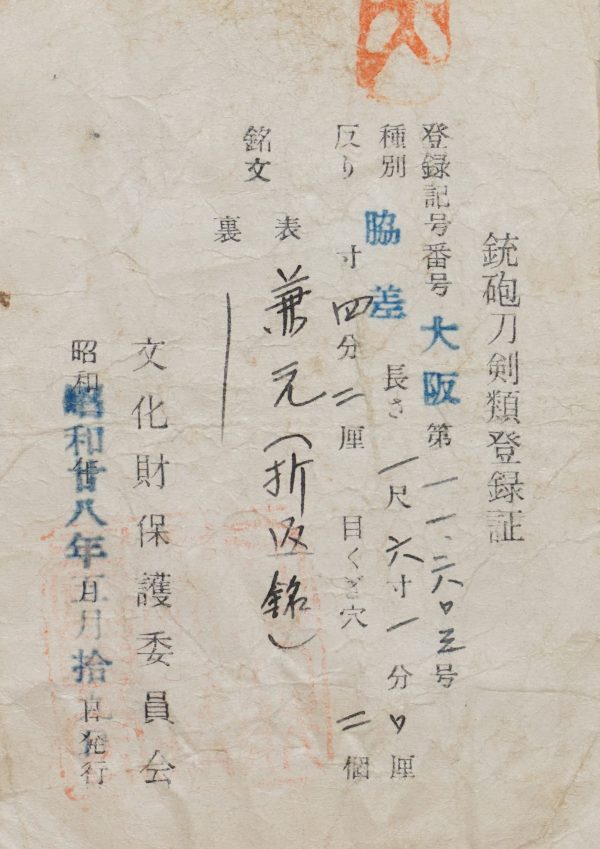 銃砲刀剣類登録証
登録記号番号 大阪 第一一、二六〇三号
種別 脇差 長さ 一尺六寸一分〇厘
反り 寸四分二厘 目くぎ穴 二個
銘文 表 兼元(折返銘)
裏
文化財保護委員会
昭和廿八年五月拾 日発行